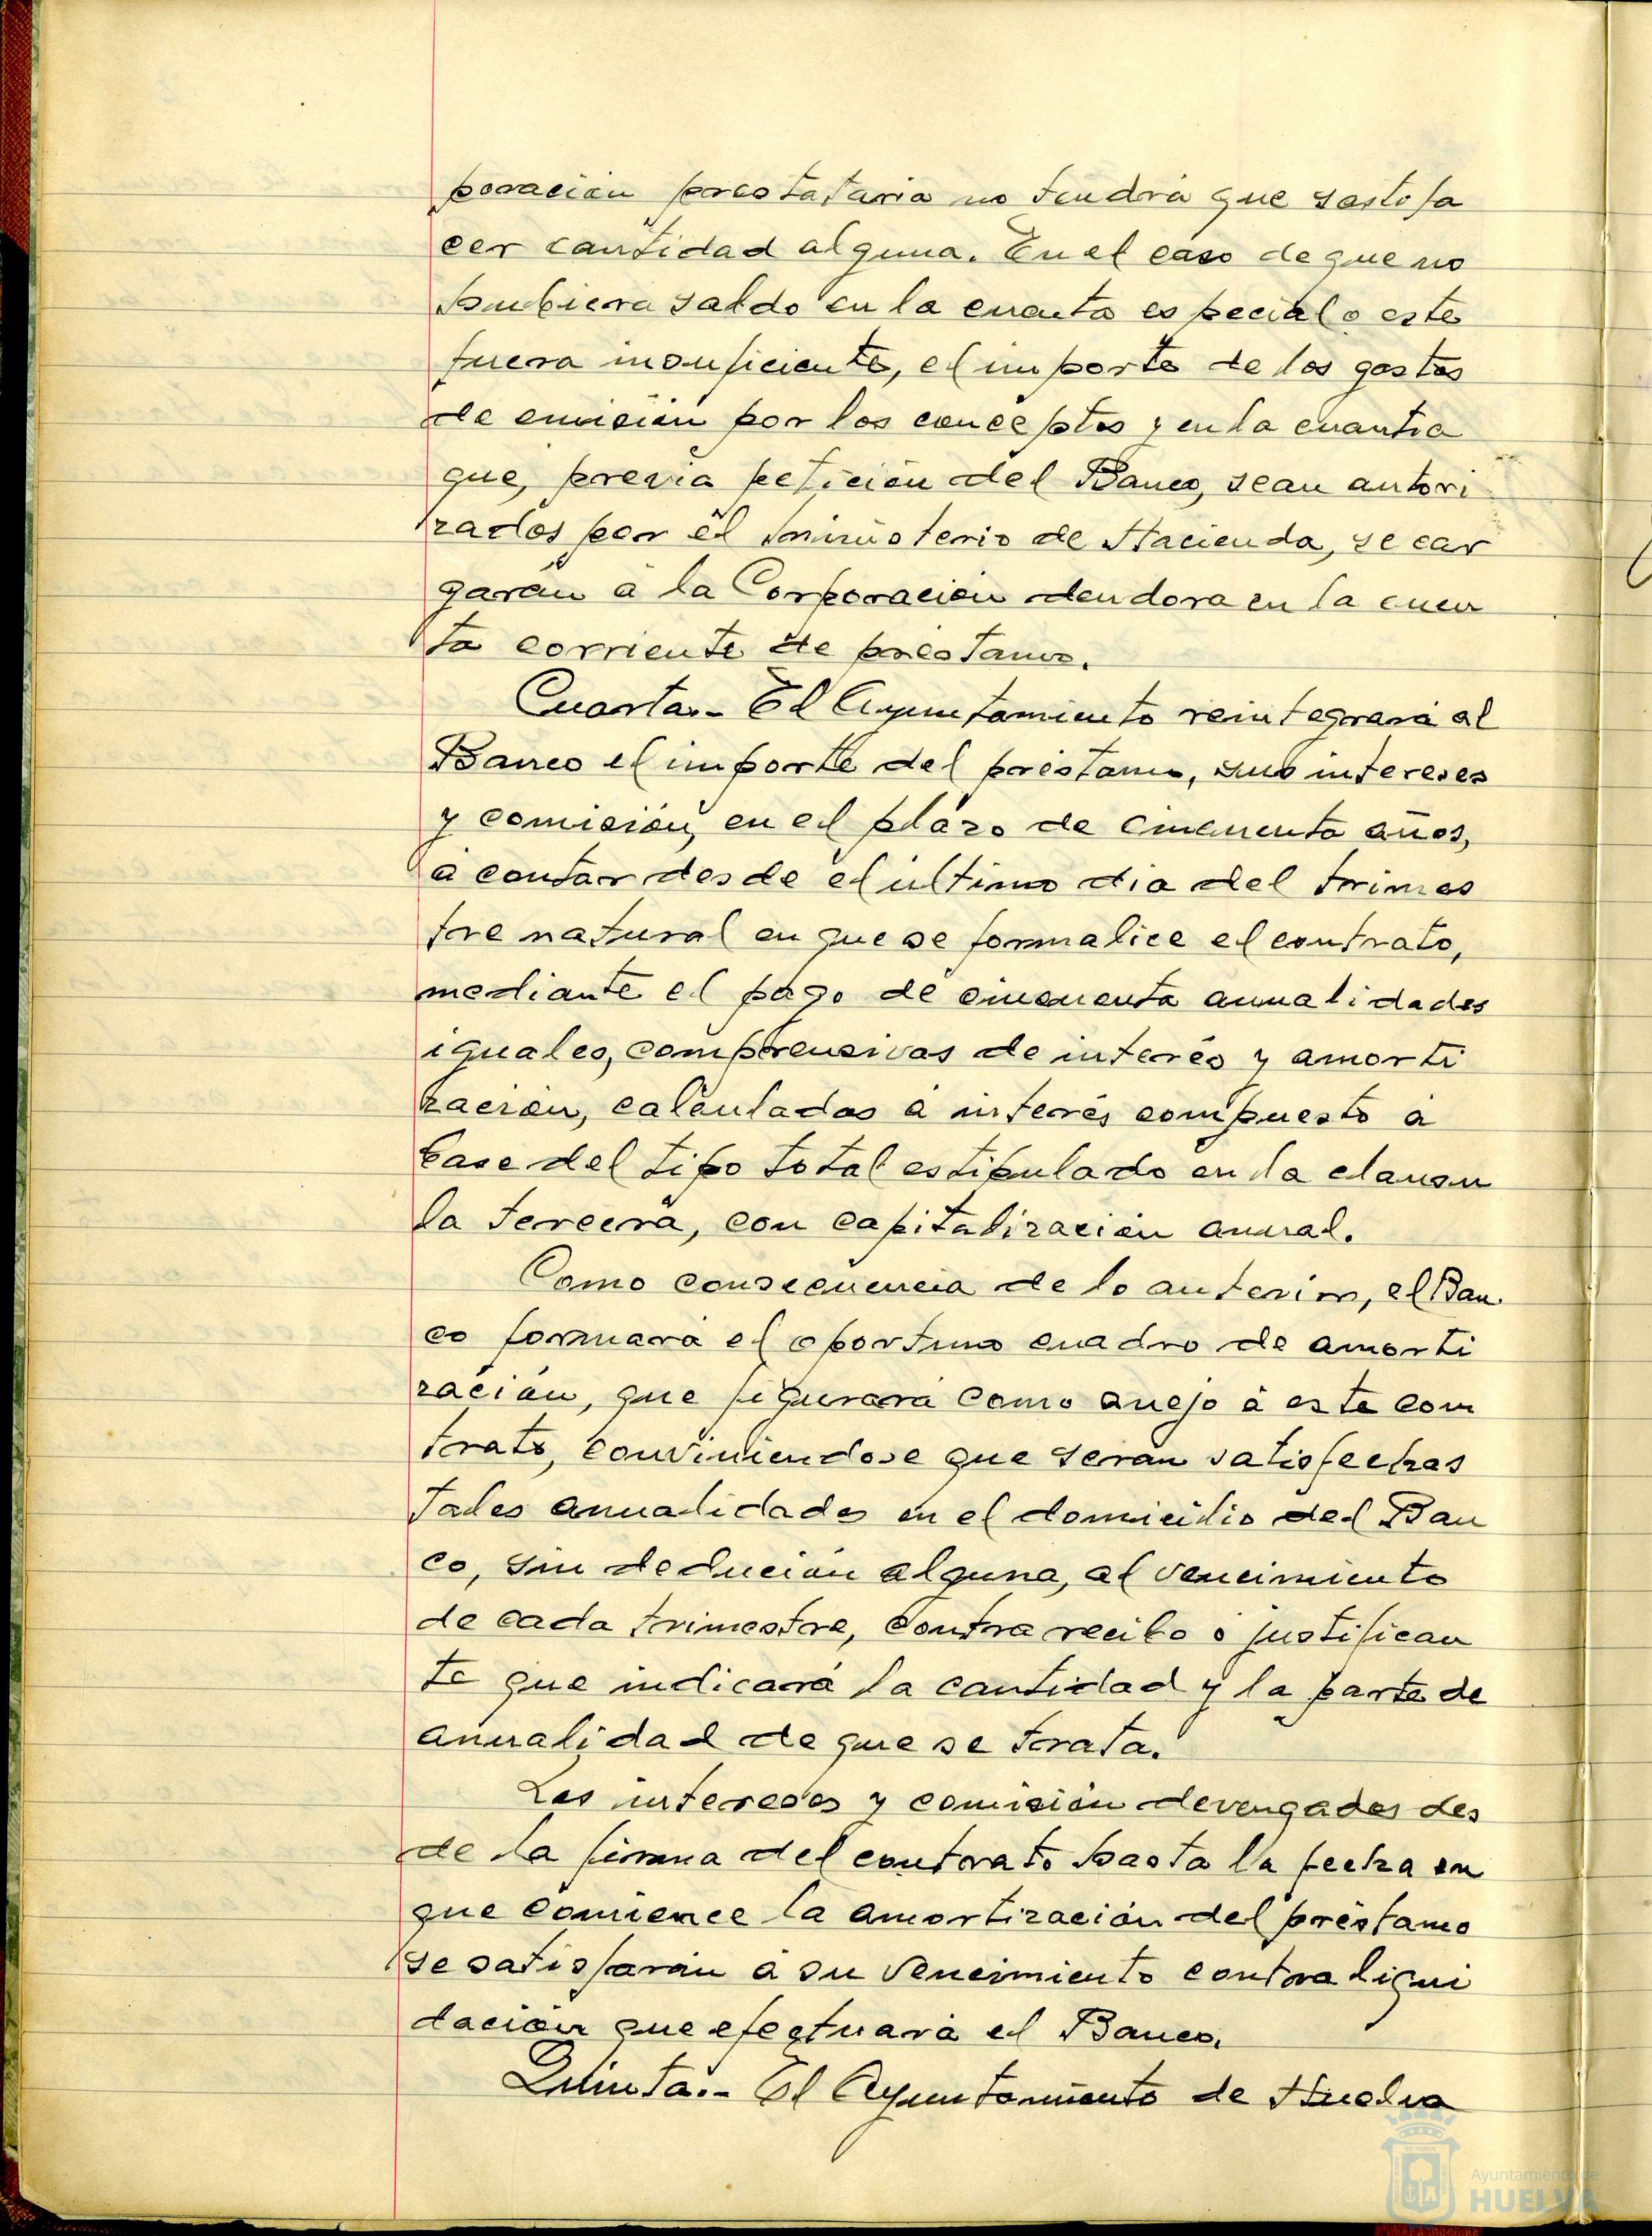 poración prestataria no tendrá que sastisfa
cer cantidad alguna. En el caso de que no
hubiera saldo en la cuenta especial o este
fuera insuficiente, el importe de los gastos
de emisión por los conceptos y en la cuantia
que, previa petición del Banco, sean autori
zados por el ministerio de Hacienda, se car
garán á la Corporación deudora en la cuen
ta corriente de préstamo.
Cuarta.- El Ayuntamiento reintegrará al
Banco el importe del préstamo, sus intereses
y comisión, en el plazo de cincuenta años,
á contar desde el último dia del trimes
tre natural en que se formalice el contrato,
mediante el pago de cincuenta anualidades
iguales, comprensivas de interés y amorti
zación, calculadas á interés compuesto á
base del tipo total estipulado en la clausu
la tercera, con capitalización anual.
Como consecuencia de lo anterior, el Ban
co formará el oportuno cuadro de amorti
zación, que figurará como anejo á este con
trato, conviniendose que serán satisfechas
tales anualidades en el domicilio del Ban
co, sin deducion alguna, al vencimiento
de cada trimestre, contra recibo ó justifican
te que indicará la cantidad y la parte de
anualidad de que se trata.
Los intereses y comisión devengados des
de la firma del contrato hasta la fecha en
que comience la amortización del préstamo
se satisfarán á su vencimiento contra liqui
dación que efectuará el Banco.
Quinta.- El Ayuntamiento de Huelva
Ayuntamiento de
HUELVA